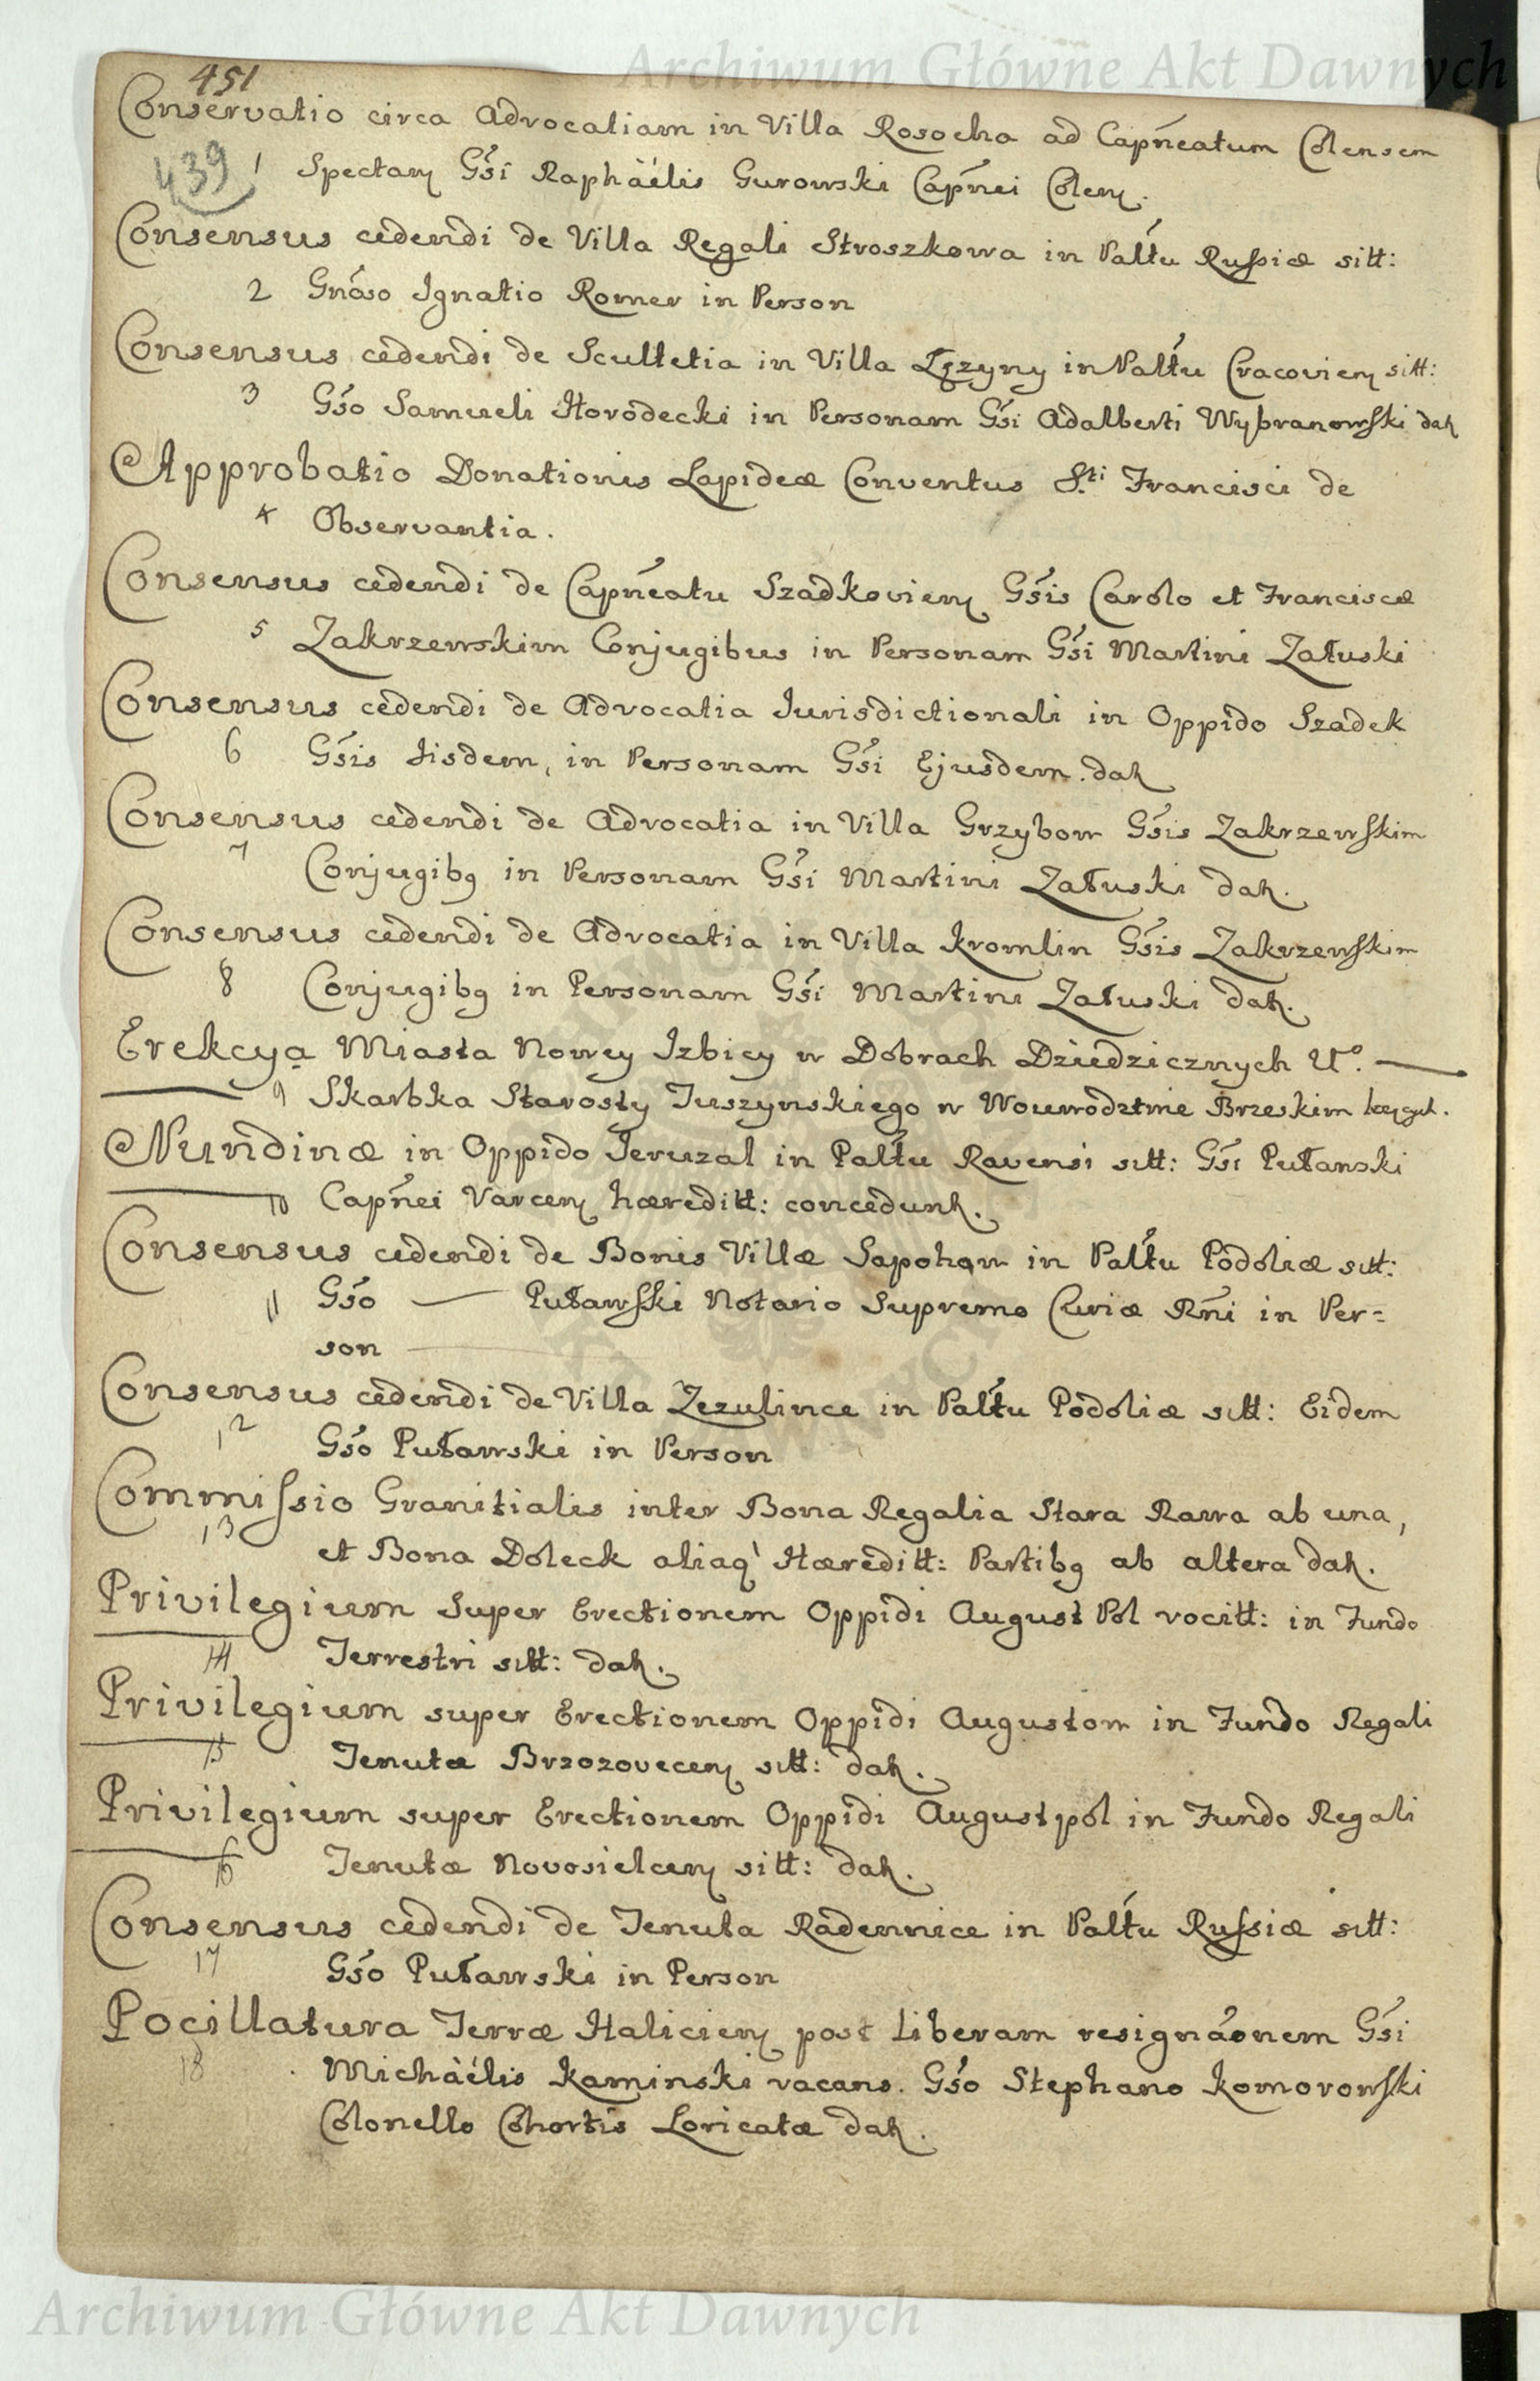 Archiwum Główne Akt Dawnych
451
Conservatio circa Advocatiam in Villa Rosocha ad Capńeatum Colensem
439
1 Spectan̄ Gśi Raphàélis Gurowski Capńei Colen̄.
Consensus cedendi de Villa Regali Stroszkowa in Paltu Russiæ sitt:
2 Gnóso Ignatio Romer in Person
Consensus cedendi de Scultetia in Villa Łęzyny in Paltu Cracovien̄ sitt:
3 Gśo Samueli Horodecki in Personam Gśi Adalberti Wybranowski dat̄
Approbatio Donationis Lapideæ Conventus S.ti Francisci de
4 Observantia.
Consensus cedendi de Capńeatu Szadkovien̄ Gśis Carolo et Franciscæ
5 Zakrzewskim Conjugibus in Personam Gśi Martini Załuski
Consensus cedendi de Advocatia Jurisdictionali in Oppido Szadek
6 Gśis Iisdem, in Personam Gśi Ejusdem. dat̄
Consensus cedendi de Advocatia in Villa Grzybow Gśis Zakrzewskim
7 Conjugibq in Personam Gśi Martini Załuski dat̄.
Consensus cedendi de Advocatia in Villa Kromlin Gśis Zakrzewskim
8 Conjugibq in Personam Gśi Martini Załuski dat̄.
Erekcya Miasta Nowey Izbicy w Dobrach Dziedzicznych Uo. —
9 Skarbka Starosty Tuszynskiego w Wouwodztwie Brzeskim
Nundinæ in Oppido Jeruzal in Paltu Ravensi sitt: Gśi Puławski
10 Capńei Varcen̄ hæreditt: concedunt̄.
Consensus cedendi de Bonis Villæ Sapohow in Paltu Podoliæ sitt:
11 Gśo — Puławski Notario Supremo Curiæ Rńi in Per=
son
Consensus cedendi de Villa Zezulince in Paltu Podoliæ sitt: Eidem
12 Gśo Puławski in Person
Commissio Granitialis inter Bona Regalia Stara Rawa ab una,
13 et Bona Doleck aliaq̀ Hæreditt: Partibq ab altera dat̄.
Privilegium super Erectionem Oppidi August Pol vocitt: in Fundo
14 Terrestri sitt: dat̄.
Privilegium super Erectionem Oppidi Augustow in Fundo Regali
15 Tenutæ Brzozovecen̄ sitt: dat̄.
Privilegium super Erectionem Oppidi Augustpol in Fundo Regali
16 Tenutæ Novosielcen̄ sitt: dat̄.
Consensus cedendi de Tenuta Radennice in Paltu Russiæ sitt:
17 Gśo Puławski in Person
Pocillatura Terræ Halicien̄ post liberam resignáonem Gśi
18 Michàélis Kaminski vacans. Gśo Stephano Komorowski
Colonello Cohortis Loricatæ dat̄.
Archiwum Główne Akt Dawnych